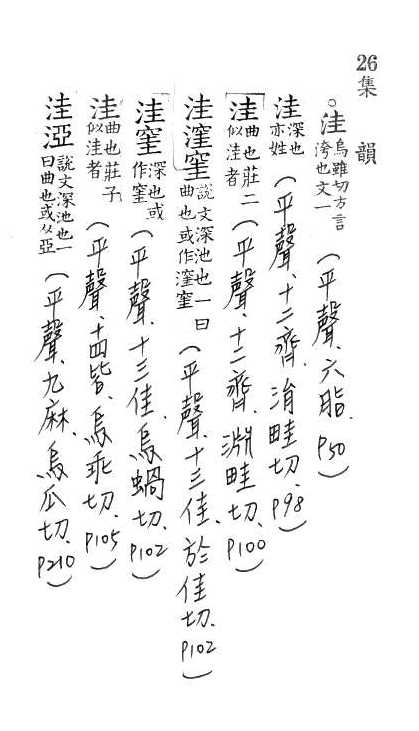 26
集韻
。洼烏雖切方言洿也文一(平聲、六脂、P50)
洼深也亦姓(平聲、十二齊、涓畦切、P98)
洼曲也莊二似洼者(平聲、十二齊、淵畦切、P100)
洼漥窐說文深池也一曰曲也或作漥窐(平聲、十三佳、於佳切、P102)
洼窐深也或作窐(平聲、十三佳、烏蝸切、P102)
洼曲也莊子似洼者(平聲、十四皆、烏乖切、P105)
洼𣿉說文深池也一曰曲也或从亞(平聲、九麻、烏瓜切、P210)